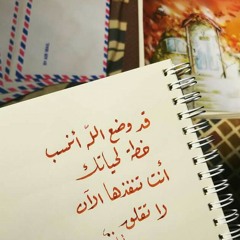 قد وضع الله أنسب
خطة لحياتك
أنت تنفذها الآن
لا تقلق